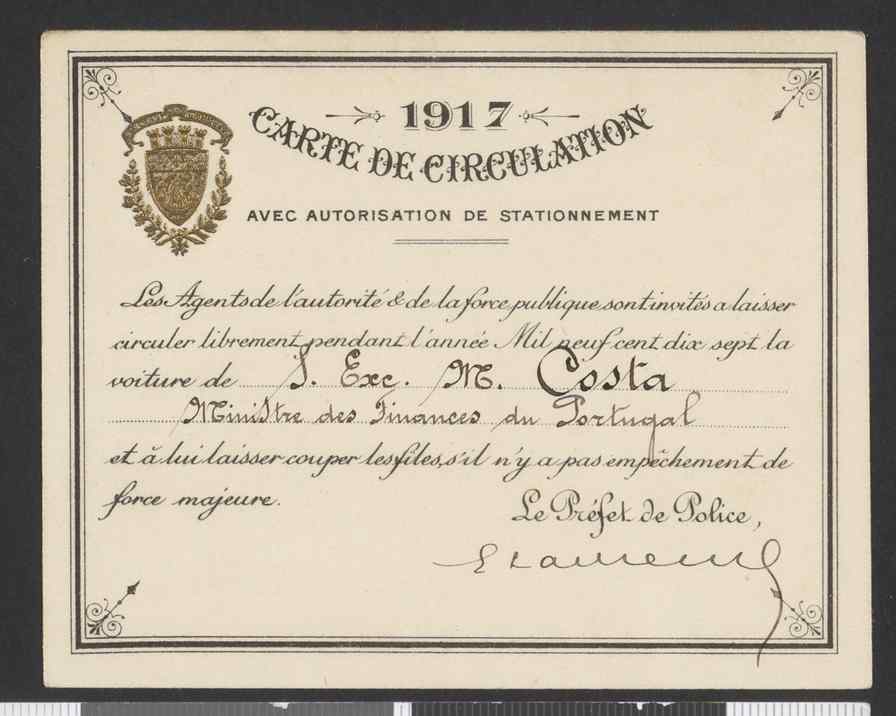 1917
CARTE DE CIRCULATION
AVEC AUTORISATION DE STATIONNEMENT
Les Agents de l'autorité & de la force publique sont invités a laisser
circuler librement pendant l'année Mil neuf cent dix sept la
voiture de S. Exc. M. Costa
Ministre des Finances du Portugal
et à lui laisser couper les files, s'il n'y a pas empêchement de
force majeure.
Le Préfet de Police,